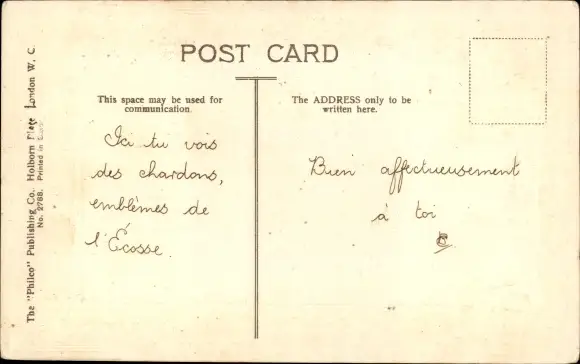 POST CARD
This space may be used for
communication.
The ADDRESS only to be
written here.
Ici tu vois
des chardons,
emblèmes de
l'Écosse.
Bien affectueusement
à toi
The "Philco" Publishing Co., Holborn Place London W. C.
No. 2788. Printed in